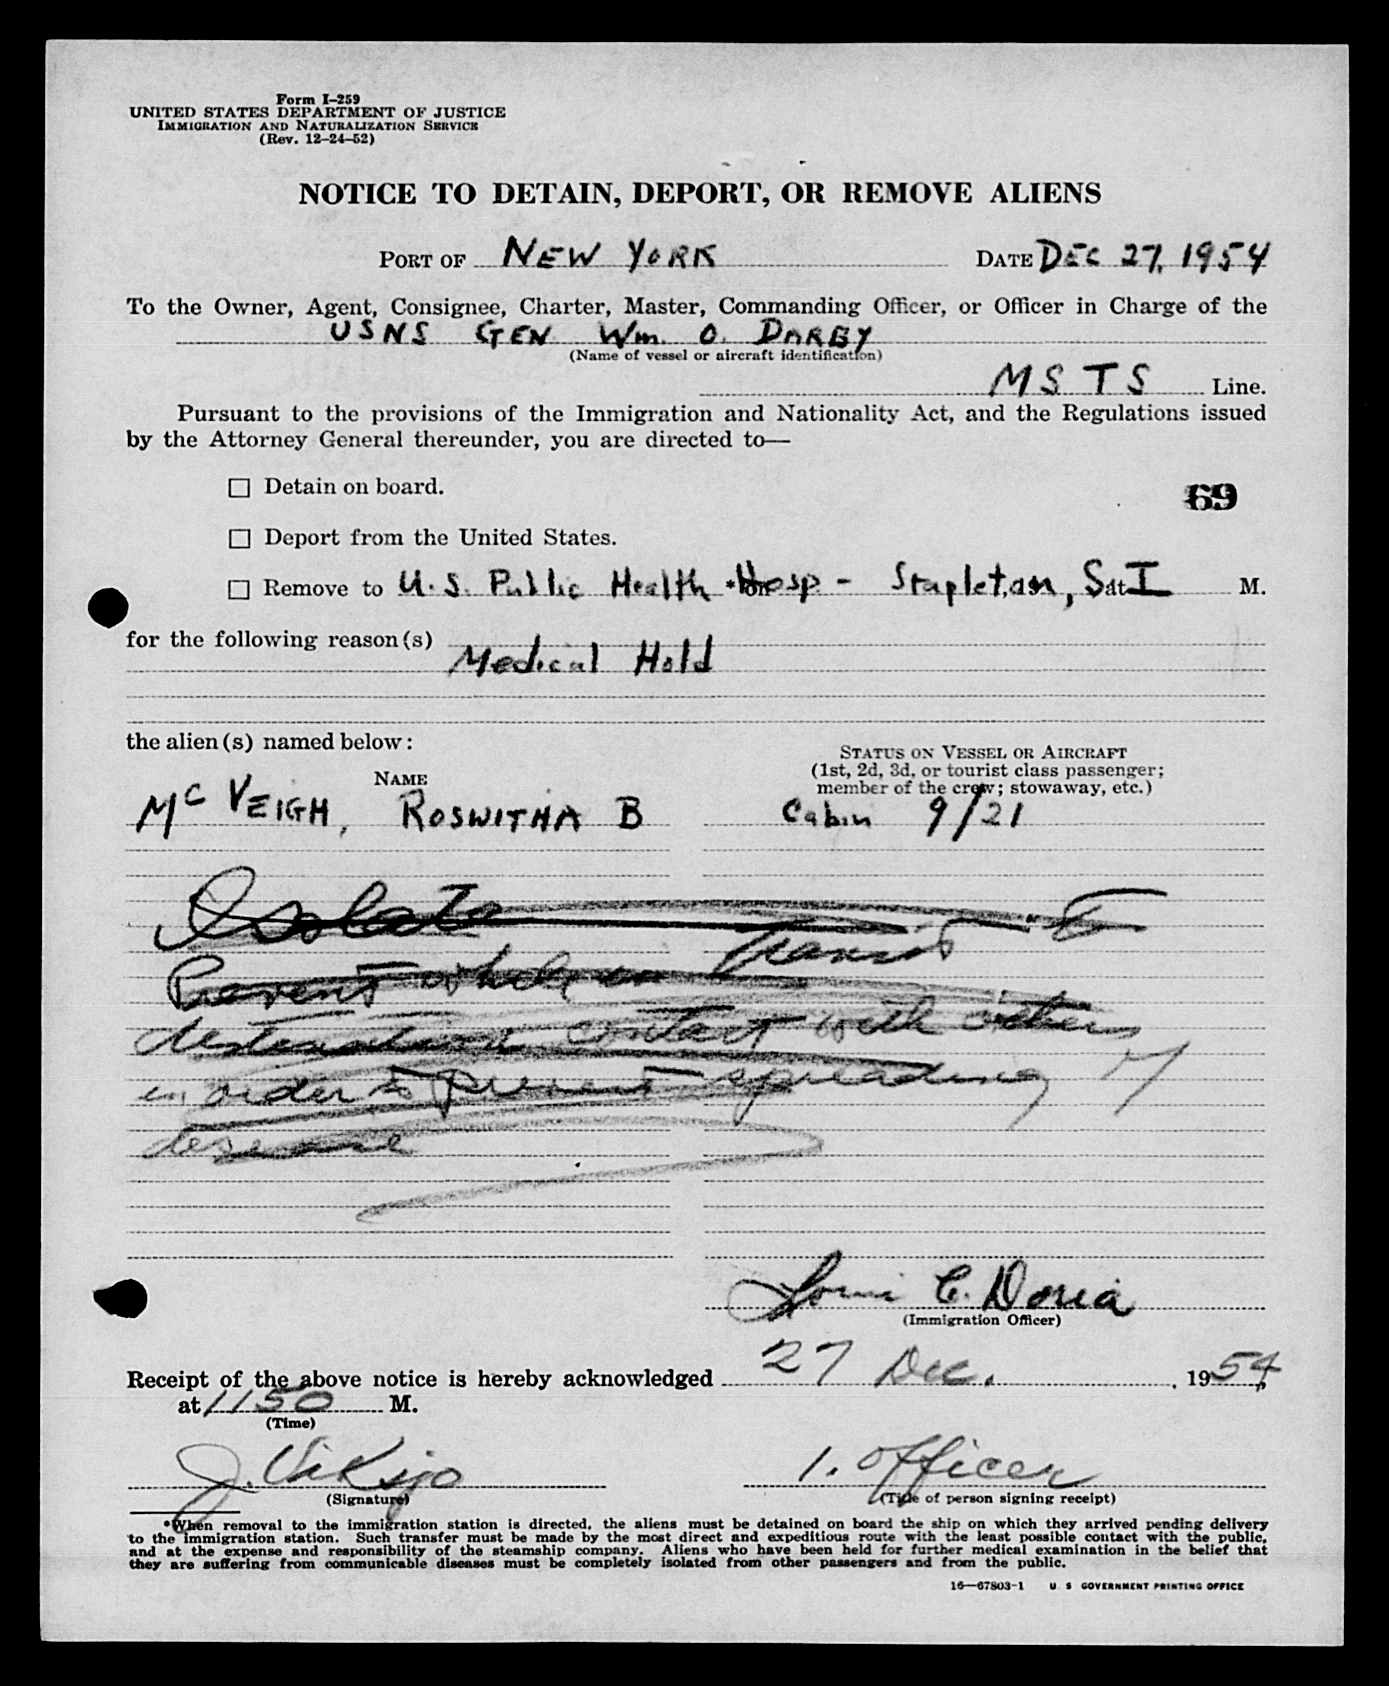 Form I-259
UNITED STATES DEPARTMENT OF JUSTICE
IMMIGRATION AND NATURALIZATION SERVICE
(Rev. 12-24-52)
NOTICE TO DETAIN, DEPORT, OR REMOVE ALIENS
PORT OF NEW YORK DATE DEC 27, 1954
To the Owner, Agent, Consignee, Charter, Master, Commanding Officer, or Officer in Charge of the
USNS GEN Wm. O. DARBY
(Name of vessel or aircraft identification)
MSTS Line.
Pursuant to the provisions of the Immigration and Nationality Act, and the Regulations issued
by the Attorney General thereunder, you are directed to—
☐ Detain on board.
69
☐ Deport from the United States.
☐ Remove to U.S. Public Health *on Hosp - Stapleton, S at I M.
for the following reason(s)
Medical Hold
the alien(s) named below:
STATUS ON VESSEL OR AIRCRAFT
NAME (1st, 2d, 3d, or tourist class passenger;
member of the crew; stowaway, etc.)
McVEIGH, ROSWITHA B Cabin 9/21
Isolate To
Prevent while in Transit
destination contact with others
in order to prevent spreading of
disease
C. Doria
(Immigration Officer)
Receipt of the above notice is hereby acknowledged 27 Dec. , 1954,
at 1150 M.
(Time)
J. 1. Officer
(Signature) (Title of person signing receipt)
*When removal to the immigration station is directed, the aliens must be detained on board the ship on which they arrived pending delivery
to the immigration station. Such transfer must be made by the most direct and expeditious route with the least possible contact with the public,
and at the expense and responsibility of the steamship company. Aliens who have been held for further medical examination in the belief that
they are suffering from communicable diseases must be completely isolated from other passengers and from the public.
16—67803-1 U. S. GOVERNMENT PRINTING OFFICE